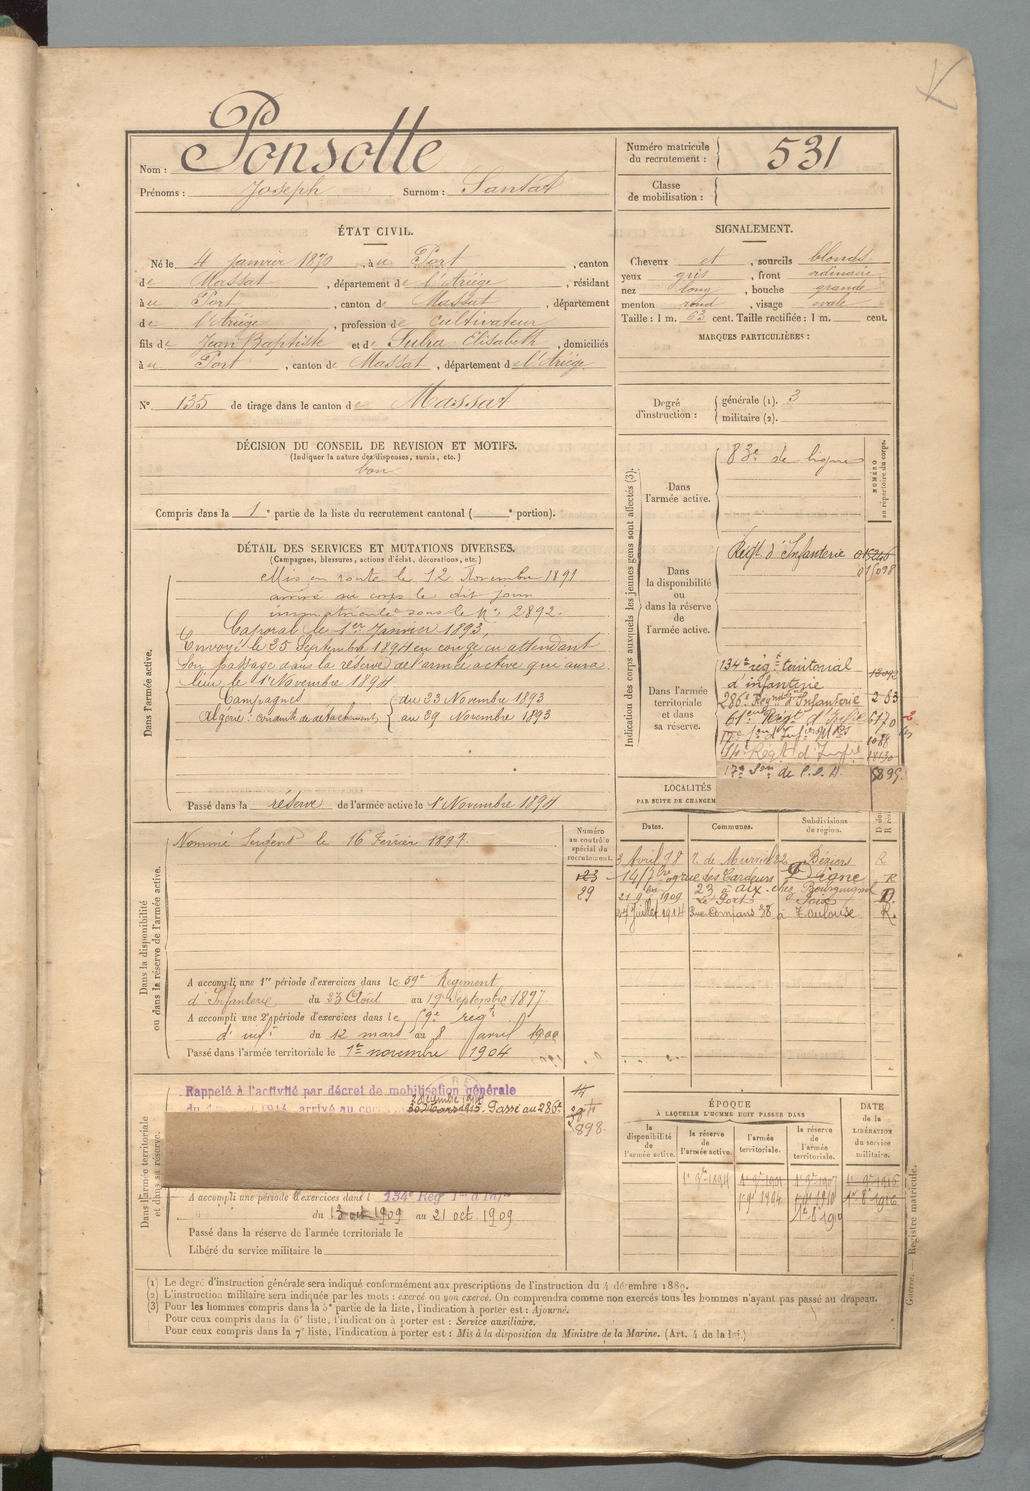 Nom : Ponsolle
Prénoms : Joseph Surnom : Santat
ÉTAT CIVIL.
Né le 4 janvier 1870, à u Port, canton
de Massat, département de l'Ariège, résidant
à u Port, canton de Massat, département
de l'Ariège, profession de cultivateur
fils de Jean Baptiste et de Sutra Elisabeth, domiciliés
à u Port, canton de Massat, département de l'Ariège
N° 135 de tirage dans le canton de Massat
DÉCISION DU CONSEIL DE REVISION ET MOTIFS.
(Indiquer la nature des dispenses, sursis, etc.)
bon
Compris dans la 1e partie de la liste du recrutement cantonal ( e portion).
DÉTAIL DES SERVICES ET MUTATIONS DIVERSES.
(Campagnes, blessures, actions d'éclat, décorations, etc.)
Dans l'armée active.
Mis en route le 12 Novembre 1891
arrivé au corps le dit jour
immatriculé sous le N° 2892.
Caporal le 1er Janvier 1893,
Envoyé le 25 Septembre 1894 en congé en attendant
son passage dans la réserve de l'armée active qui aura
lieu le 1er Novembre 1894
Campagnes du 23 Novembre 1893
Algérie: conduite de détachement, au 29 Novembre 1893
Passé dans la réserve de l'armée active le 1er Novembre 1894
Dans la disponibilité
ou dans la réserve de l'armée active.
Nommé Sergent le 16 Février 1897.
Numéro
au contrôle
spécial du
recrutement.
123
29
A accompli une 1re période d'exercices dans le 59e Régiment
d'Infanterie du 23 Août au 19 Septembre 1897.
A accompli une 2e période d'exercices dans le 59e régt
d'inf. du 12 mars au 8 avril 1900
Passé dans l'armée territoriale le 1er novembre 1904
Dans l'armée territoriale
et dans sa réserve.
Rappelé à l'activité par décret de mobilisation générale
du 1914, arrivé au corps
Passé au 286e
898.
A accompli une période d'exercices dans l 134e Rég
du 13 oct 1909 au 21 oct. 1909
Passé dans la réserve de l'armée territoriale le
Libéré du service militaire le
Numéro matricule
du recrutement : 531
Classe
de mobilisation :
SIGNALEMENT.
Cheveux et, sourcils blonds
yeux gris, front ordinaire
nez long, bouche grande
menton rond, visage ovale
Taille : 1 m. 63 cent. Taille rectifiée : 1 m. cent.
MARQUES PARTICULIÈRES :
Degré
d'instruction :
générale (1). 3
militaire (2).
Indication des corps auxquels les jeunes gens sont affectés (3).
NUMÉRO
au répertoire du corps.
Dans
l'armée active.
83e de ligne
Dans
la disponibilité
ou dans
la réserve de
l'armée active.
Régt d'Infanterie
015098
Dans l'armée
territoriale
et dans
sa réserve.
134e régt territorial
d'infanterie
286e Régt d'Infanterie 283
61e Régt d'Infie 6170
17e Son de C.O.A. 5895.
LOCALITÉS
PAR SUITE DE CHANGEM
Dates. Communes. Subdivisions
de région.
3 Avril 98 Béziers R
Digne R
1909 D.
27 juillet 1914 38 à Toulouse R.
ÉPOQUE
À LAQUELLE L'HOMME DOIT PASSER DANS
DATE
de la
LIBÉRATION
du service
militaire.
la
disponibilité
de l'armée active.
la réserve
de
l'armée active.
l'armée
territoriale.
la réserve
de
l'armée
territoriale.
1er 9bre 1894
1er 9bre 1904
Guerre. — Registre matricule.
(1) Le degré d'instruction générale sera indiqué conformément aux prescriptions de l'instruction du 4 décembre 1889.
(2) L'instruction militaire sera indiquée par les mots : exercé ou non exercé. On comprendra comme non exercés tous les hommes n'ayant pas passé au drapeau.
(3) Pour les hommes compris dans la 5e partie de la liste, l'indication à porter est : Ajourné.
Pour ceux compris dans la 6e liste, l'indication à porter est : Service auxiliaire.
Pour ceux compris dans la 7e liste, l'indication à porter est : Mis à la disposition du Ministre de la Marine. (Art. 4 de la loi.)